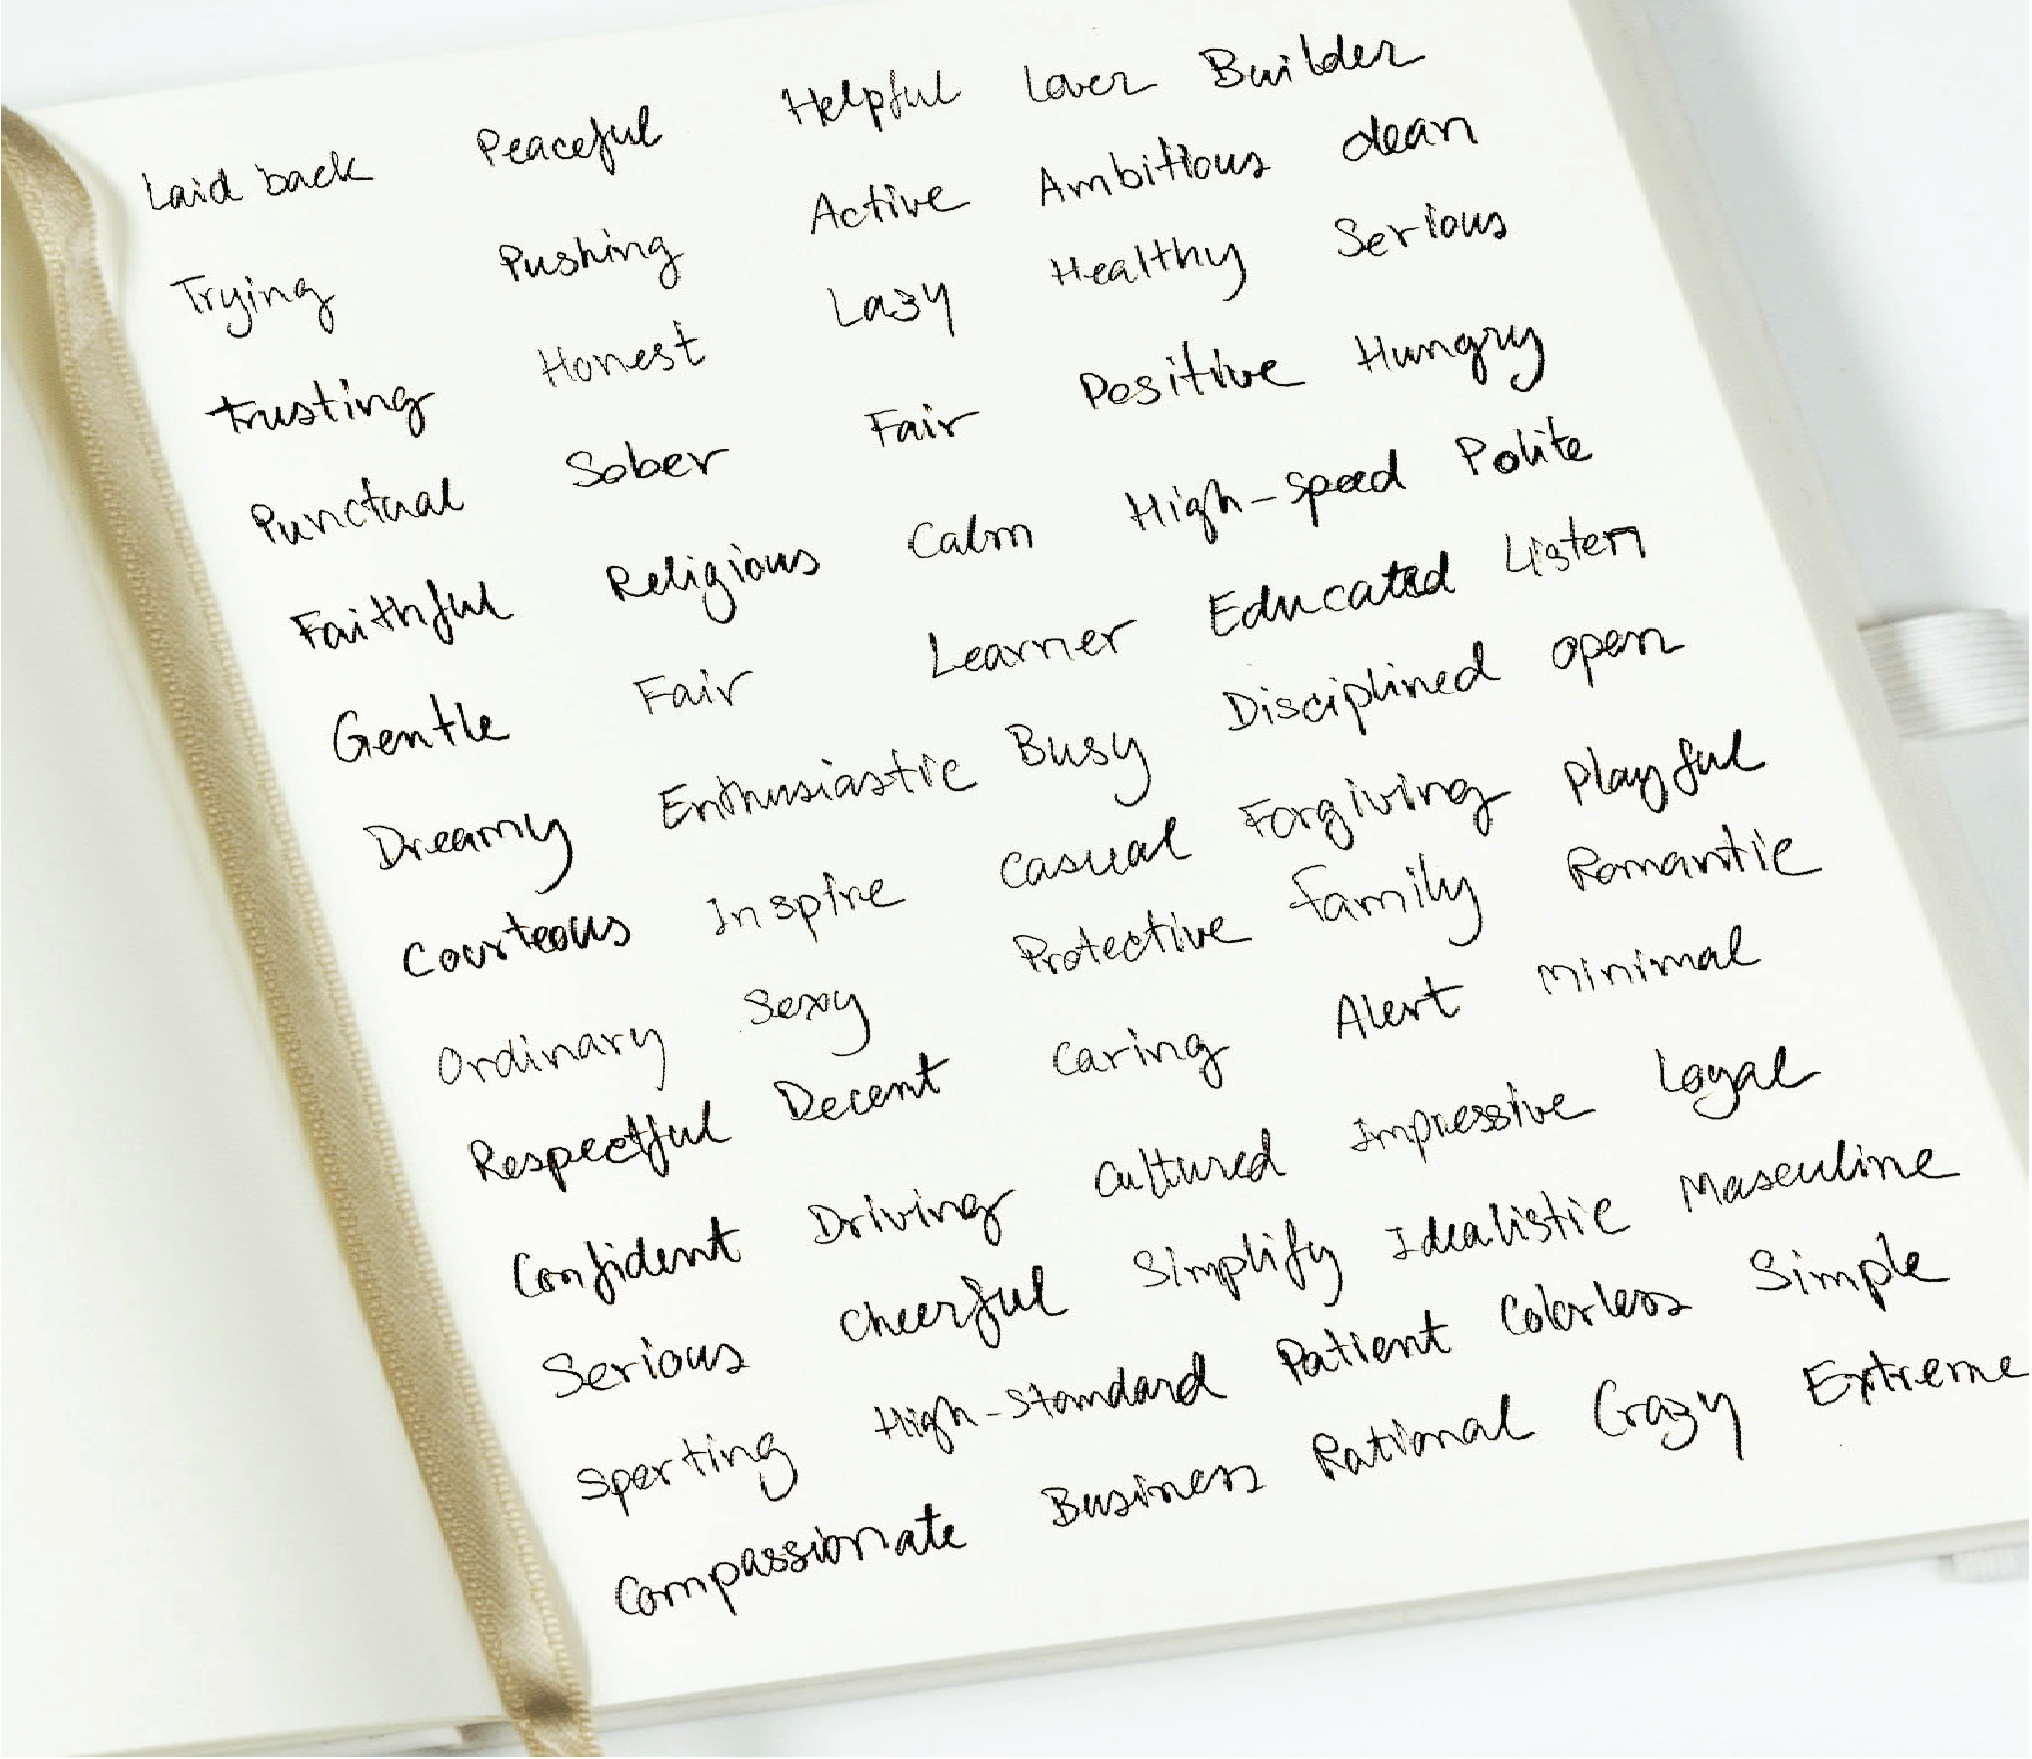 Laid back Peaceful Helpful Lover Builder
Trying Pushing Active Ambitious clean
Trusting Honest Lazy Healthy Serious
Punctual Sober Fair Positive Hungry
Faithful Religious Calm High-speed Polite
Gentle Fair Learner Educated Listen
Dreamy Enthusiastic Busy Disciplined open
Courteous Inspire Casual Forgiving Playful
Ordinary Sexy Protective Family Romantic
Respectful Decent Caring Alert Minimal
Confident Driving Cultured Impressive Loyal
Serious Cheerful Simplify Idealistic Masculine
Sporting High-Standard Patient Colorless Simple
Compassionate Business Rational Crazy Extreme